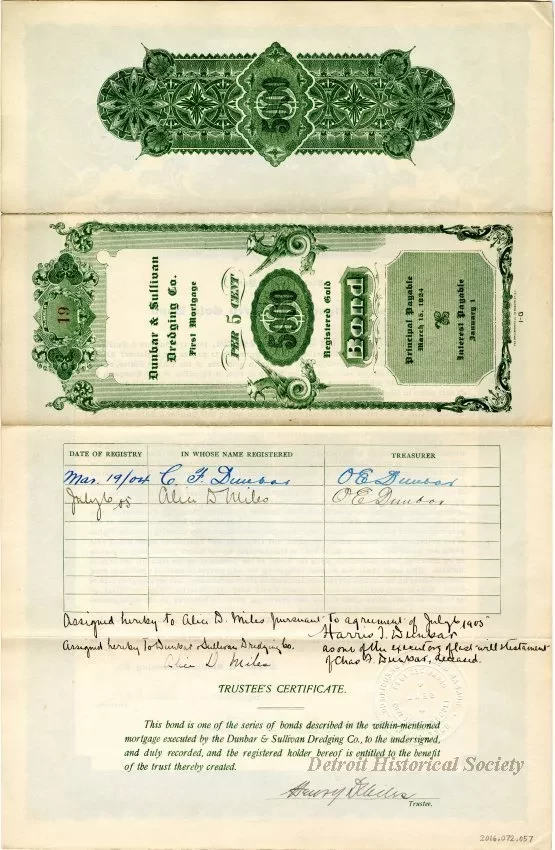 5000
19
Dunbar & Sullivan
Dredging Co.
First Mortgage
PER 5 CENT
5000
Registered Gold
Bond
Principal Payable
March 15, 1924
Interest Payable
January 1
DATE OF REGISTRY IN WHOSE NAME REGISTERED TREASURER
Mar. 19/04 C. F. Dunbar O E Dunbar
July 6, 05 Alice D Miles O E Dunbar
Assigned hereby to Alice D. Miles pursuant to agreement of July 6, 1905
Harris T. Dunbar
as one of the executors of last will & testament
of Chas F. Dunbar, deceased.
Assigned hereby to Dunbar & Sullivan Dredging Co.
Alice D. Miles
TRUSTEE'S CERTIFICATE.
This bond is one of the series of bonds described in the within-mentioned
mortgage executed by the Dunbar & Sullivan Dredging Co., to the undersigned,
and duly recorded, and the registered holder hereof is entitled to the benefit
of the trust thereby created.
Detroit Historical Society
Henry
Trustee.
2016.072.057